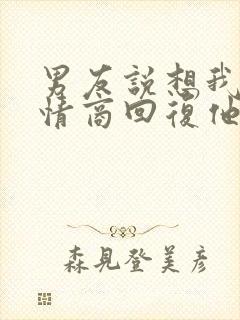 男友說想我
情商回復他
森見登美彥